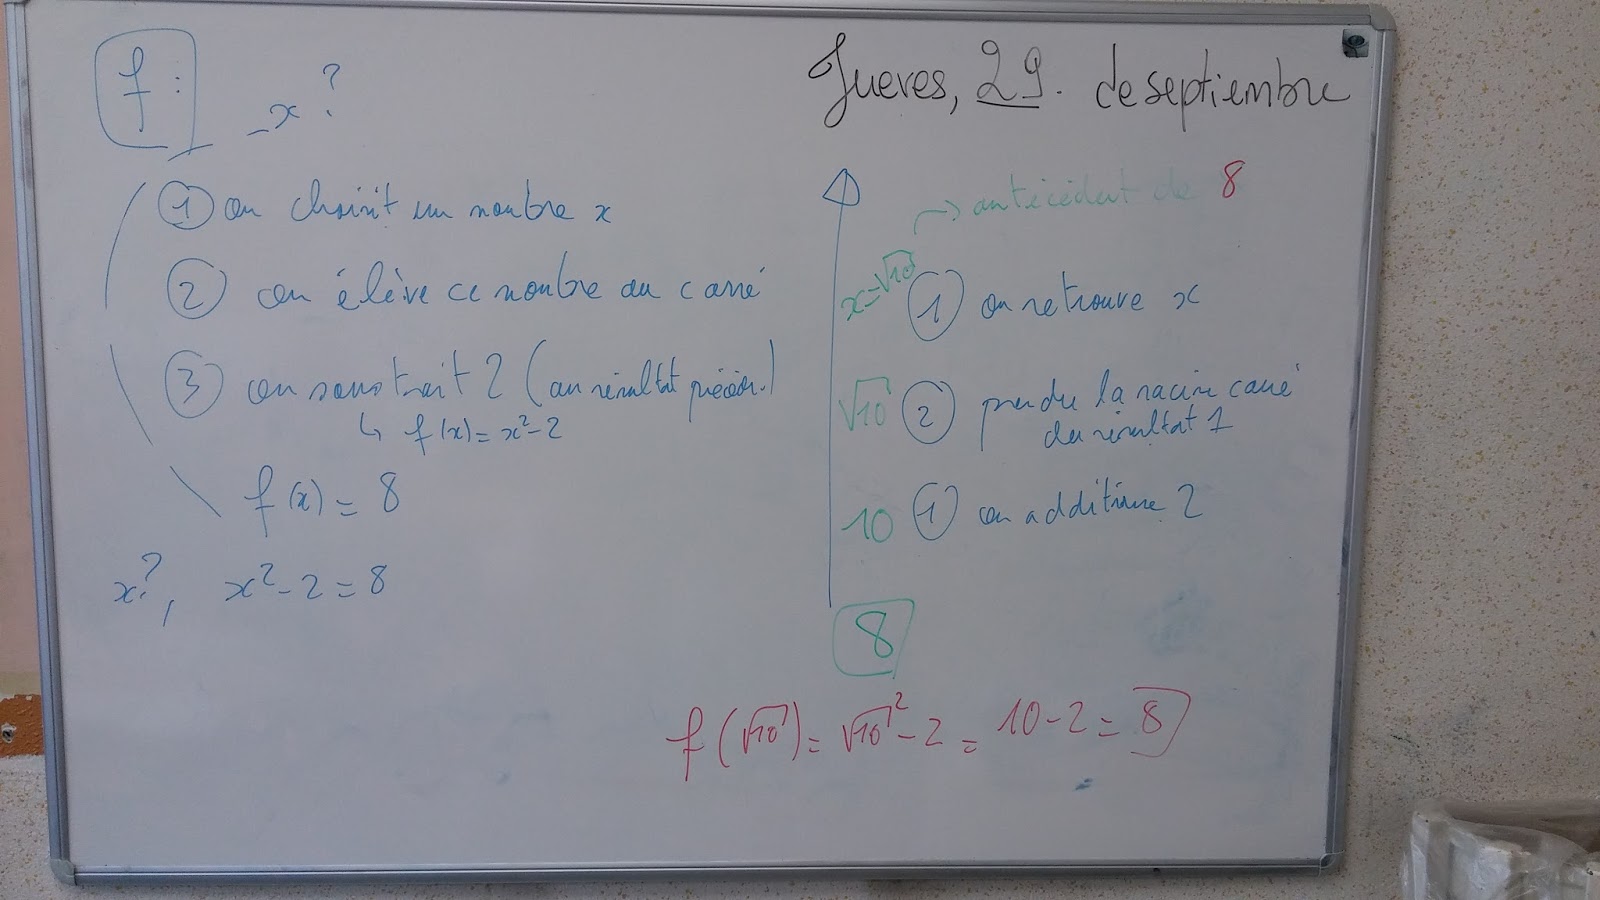 f :
x ?
Jueves, 29. de septiembre
① on choisit un nombre x
② on élève ce nombre au carré
③ on soustrait 2 (au résultat précéd.)
↳ f(x) = x² - 2
f(x) = 8
x?, x² - 2 = 8
→ antécédent de 8
x = √10 ① on retrouve x
√10 ② prendre la racine carré
du résultat 1
10 ① on additionne 2
8
f(√10) = √10² - 2 = 10 - 2 = 8